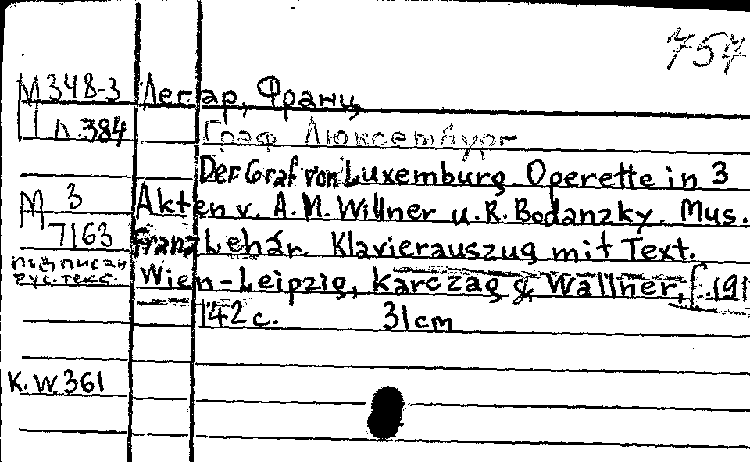 757
М 348-3 Легар, Франц
Л 384 Граф Люксембург
Der Graf von Luxemburg. Operette in 3
М 3 Akten v. A. M. Willner u. R. Bodanzky. Mus.
7163 Franz Lehár. Klavierauszug mit Text.
подписан Wien-Leipzig, Karczag & Wallner, [191
рус. текс. 142 с. 31 cm
K. W. 361